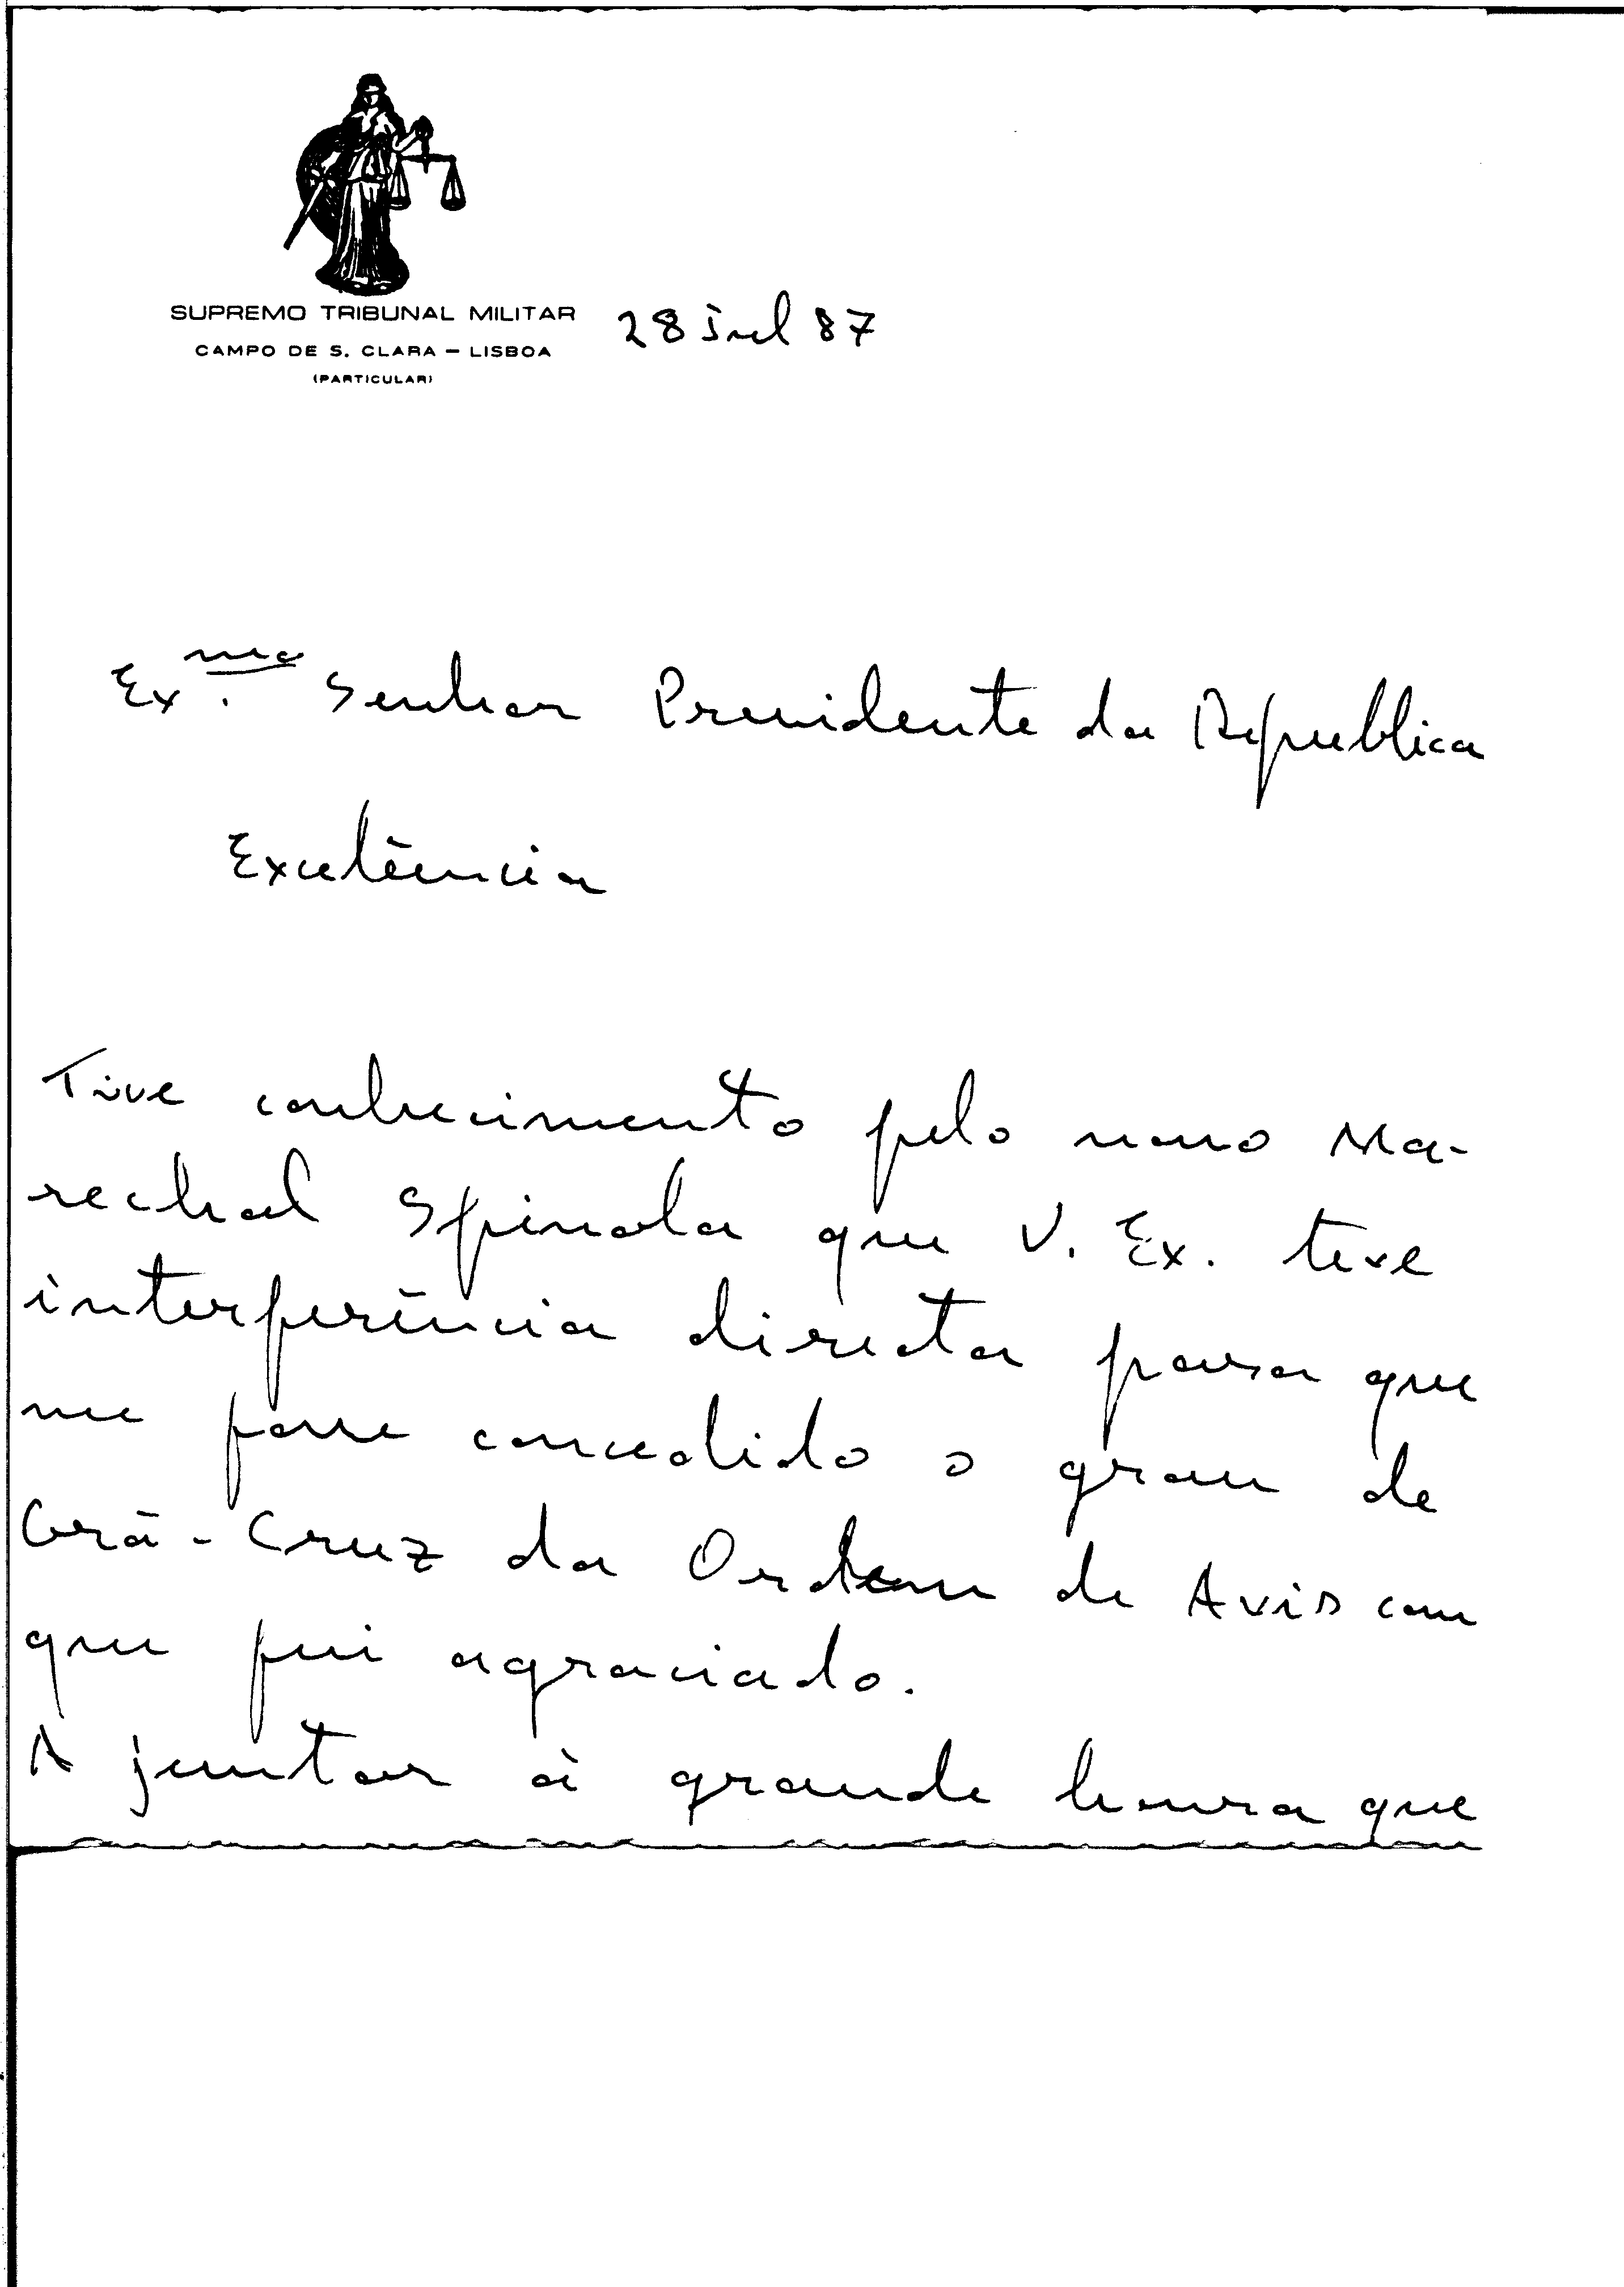 SUPREMO TRIBUNAL MILITAR
CAMPO DE S. CLARA – LISBOA
(PARTICULAR)
28 Jul 87
Ex.mo Senhor Presidente da Republica
Excelência
Tive conhecimento pelo nosso Ma-
rechal Spinola que V. Ex. teve
interferência directa para que
me fosse concedido o grau de
Grã-Cruz da Ordem de Avis com
que fui agraciado.
A juntar à grande honra que